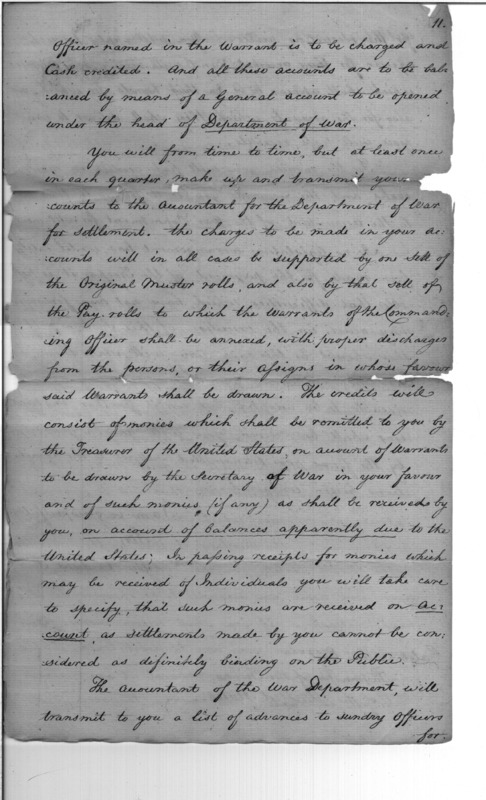 11.
Officer named in the Warrant is to be charged and
Cash credited. And all these accounts are to be bal:
:anced by means of a General account to be opened
under the head of Department of War.
You will from time to time, but at least once
in each quarter, make up and transmit your
:counts to the Accountant for the Department of War
for settlement. The charges to be made in your ac:
:counts will in all cases be supported by one sett of
the Original Muster rolls, and also by that sett of
the Pay-rolls to which the Warrants of the Command:
ing Officer shall be annexed, with proper discharges
from the persons, or their assigns in whose favour
said Warrants shall be drawn. The credits will
consist of monies which shall be remitted to you by
the Treasurer of the United States, on account of Warrants
to be drawn by the Secretary of War in your favour
and of such monies, (if any) as shall be received by
you, on account of balances apparently due to the
United States; In passing receipts for monies which
may be received of Individuals you will take care
to specify, that such monies are received on ac:
count, as settlements made by you cannot be con:
:sidered as definitely binding on the Public.
The Accountant of the War Department, will
transmit to you a list of advances to sundry Officers
for